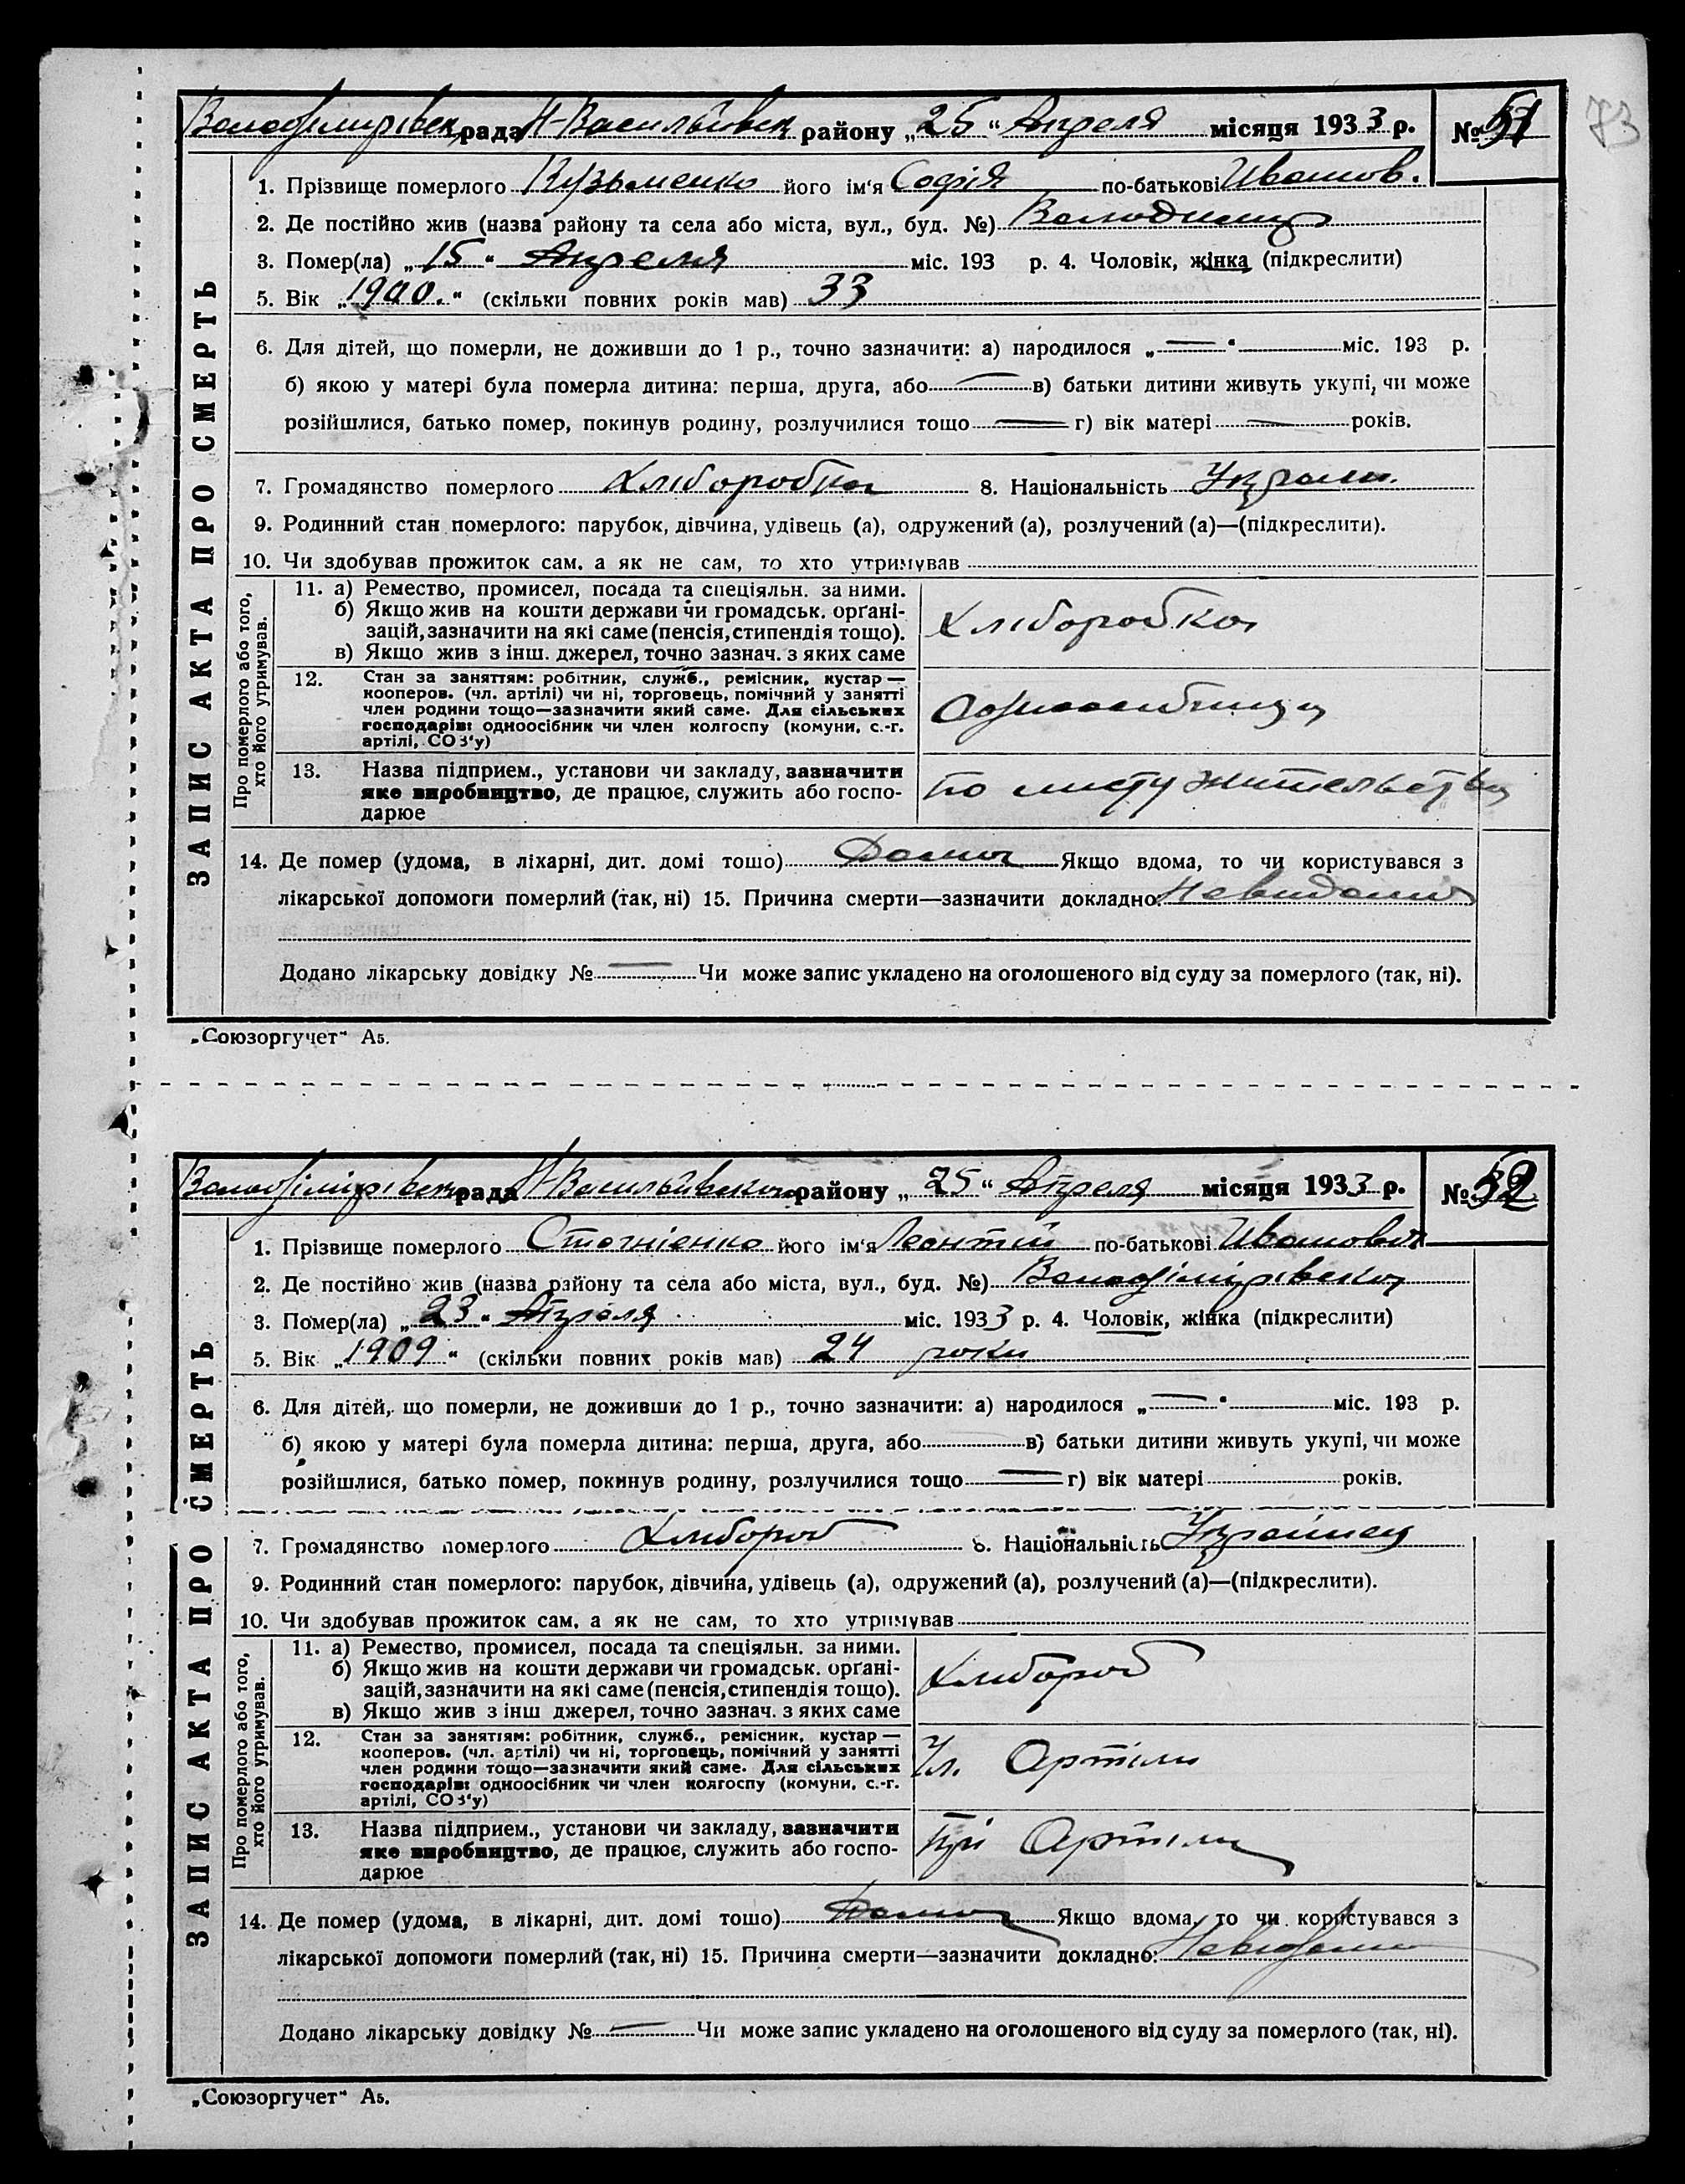 73
Володімирівськ рада Н-Васильівськ району „25“ Апреля місяця 1933 р. № 51
1. Прізвище померлого Кузьменко його ім‘я Софія по-батькові Иванов.
2. Де постійно жив (назва району та села або міста, вул., буд. №) Володимир
3. Помер(ла) „15“ Апреля міс. 193 р. 4. Чоловік, жінка (підкреслити)
5. Вік „1900.“ (скільки повних років мав) 33
6. Для дітей, що померли, не доживши до 1 р., точно зазначити: а) народилося „—“ міс. 193 р.
б) якою у матері була померла дитина: перша, друга, або — в) батьки дитини живуть укупі, чи може
розійшлися, батько помер, покинув родину, розлучилися тощо — г) вік матері — років.
7. Громадянство померлого Хліборобка 8. Національність Україн.
9. Родинний стан померлого: парубок, дівчина, удівець (а), одружений (а), розлучений (а)—(підкреслити).
10. Чи здобував прожиток сам, а як не сам, то хто утримував
ЗАПИС АКТА ПРО СМЕРТЬ
Про померлого або того, хто його утримував.
11. а) Ремество, промисел, посада та спеціяльн. за ними.
б) Якщо жив на кошти держави чи громадськ. орґані-
зацій, зазначити на які саме (пенсія, стипендія тощо).
в) Якщо жив з інш. джерел, точно зазнач. з яких саме
Хліборобка
12. Стан за заняттям: робітник, служб., ремісник, кустар—
кооперов. (чл. артілі) чи ні, торговець, помічний у занятті
член родини тощо—зазначити який саме. Для сільських
господарів: одноосібник чи член колгоспу (комуни, с.-г.
артілі, СОЗ‘у)
13. Назва підприєм., установи чи закладу, зазначити
яке виробництво, де працює, служить або госпо-
дарює
по місту жительства
14. Де помер (удома, в ліхарні, дит. домі тошо) Дома Якщо вдома, то чи користувався з
лікарської допомоги померлий (так, ні) 15. Причина смерти—зазначити докладно: Невидома
Додано лікарську довідку № — Чи може запис укладено на оголошеного від суду за померлого (так, ні).
„Союзоргучет“ А5.
Володімирівськ рада Н Васильівського району „25“ Апреля місяця 1933 р. № 52
1. Прізвище померлого Стогніенко його ім‘я Леонтій по-батькові Иванович
2. Де постійно жив (назва району та села або міста, вул., буд. №) Володімирівська
3. Помер(ла) „23“ Апреля міс. 1933 р. 4. Чоловік, жінка (підкреслити)
5. Вік „1909“ (скільки повних років мав) 24 роки
6. Для дітей, що померли, не доживши до 1 р., точно зазначити: а) народилося „—“ міс. 193 р.
б) якою у матері була померла дитина: перша, друга, або в) батьки дитини живуть укупі, чи може
розійшлися, батько помер, покинув родину, розлучилися тощо — г) вік матері років.
7. Громадянство померлого Хлібороб 8. Національність Украінец
9. Родинний стан померлого: парубок, дівчина, удівець (а), одружений (а), розлучений (а)—(підкреслити).
10. Чи здобував прожиток сам, а як не сам, то хто утримував
ЗАПИС АКТА ПРО СМЕРТЬ
Про померлого або того, хто його утримував.
11. а) Ремество, промисел, посада та спеціяльн. за ними.
б) Якщо жив на кошти держави чи громадськ. орґані-
зацій, зазначити на які саме (пенсія, стипендія тощо).
в) Якщо жив з інш джерел, точно зазнач. з яких саме
Хлібороб
12. Стан за заняттям: робітник, служб., ремісник, кустар—
кооперов. (чл. артілі) чи ні, торговець, помічний у занятті
член родини тощо—зазначити який саме. Для сільських
господарів: одноосібник чи член колгоспу (комуни, с.-г.
артілі, СОЗ‘у)
Чл. Артіли
13. Назва підприєм., установи чи закладу, зазначити
яке виробництво, де працює, служить або госпо-
дарює
при Артіли
14. Де помер (удома, в лікарні, дит. домі тошо) Дома Якщо вдома, то чи користувався з
лікарської допомоги померлий (так, ні) 15. Причина смерти—зазначити докладно: Невідома
Додано лікарську довідку № — Чи може запис укладено на оголошеного від суду за померлого (так, ні).
„Союзоргучет“ А5.